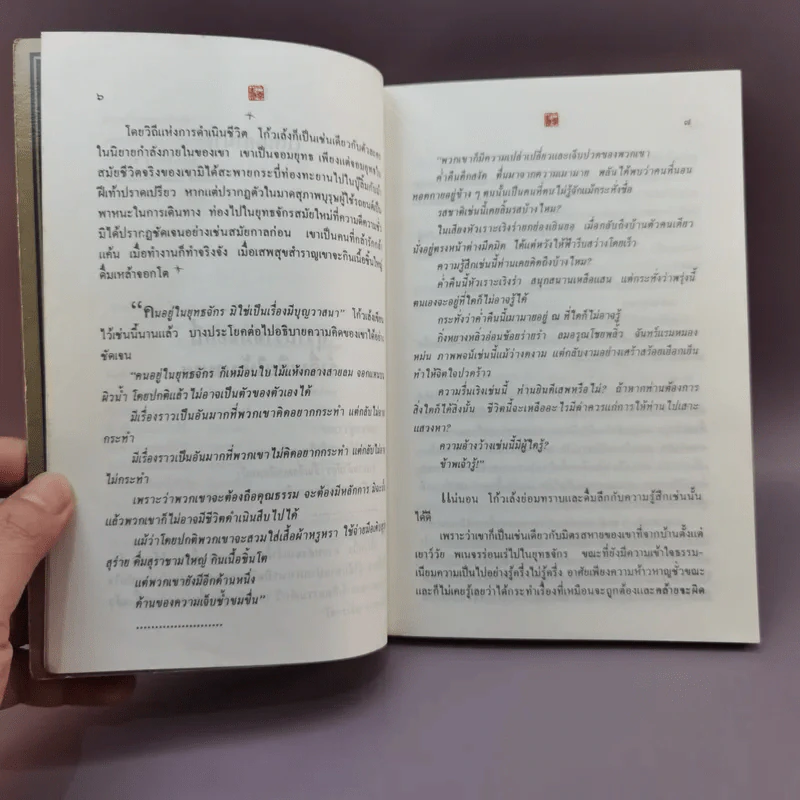 ๖
โดยวิถีแห่งการดำเนินชีวิต โก้วเล้งก็เป็นเช่นเดียวกับตัวละคร
ในนิยายกำลังภายในของเขา เขาเป็นจอมยุทธ เพียงแต่จอมยุทธใน
สมัยชีวิตจริงของเขามิได้สะพายกระบี่ท่องทะยานไปในบู๊ลิ้มกับม้า
ฝีเท้าปราดเปรียว หากแต่ปรากฏตัวในมาดสุภาพบุรุษผู้ใช้รถยนต์เป็น
พาหนะในการเดินทาง ท่องไปในยุทธจักรสมัยใหม่ที่ความดีความชั่ว
มิได้ปรากฏชัดเจนอย่างเช่นสมัยกาลก่อน เขาเป็นคนที่กล้ารักกล้า
แค้น เมื่อทำงานก็ทำจริงจัง เมื่อเสพสุขสำราญเขาจะกินเนื้อชิ้นใหญ่
ดื่มเหล้าจอกโต
“คนอยู่ในยุทธจักร มิใช่เป็นเรื่องมีบุญวาสนา” โก้วเล้งเขียน
ไว้เช่นนี้นานแล้ว บางประโยคต่อไปอธิบายความคิดของเขาได้อย่าง
ชัดเจน
“คนอยู่ในยุทธจักร ก็เหมือนใบไม้แห้งกลางสายลม จอกแหนบน
ผิวน้ำ โดยปกติแล้วไม่อาจเป็นตัวของตัวเองได้
มีเรื่องราวเป็นอันมากที่พวกเขาคิดอยากกระทำ แต่กลับไม่อาจ
กระทำ
มีเรื่องราวเป็นอันมากที่พวกเขาไม่คิดอยากกระทำ แต่กลับไม่อาจ
ไม่กระทำ
เพราะว่าพวกเขาจะต้องถือคุณธรรม จะต้องมีหลักการ มิฉะนั้น
แล้วพวกเขาก็ไม่อาจมีชีวิตดำเนินสืบไปได้
แม้ว่าโดยปกติพวกเขาจะสวมใส่เสื้อผ้าหรูหรา ใช้จ่ายมือเติบสุ
รุ่ยสุร่าย ดื่มสุราชามใหญ่ กินเนื้อชิ้นโต
แต่พวกเขายังมีอีกด้านหนึ่ง
ด้านของความเจ็บช้ำขมขื่น”
......................
๗
“พวกเขาก็มีความเปล่าเปลี่ยวและเจ็บปวดของพวกเขา
ค่ำคืนดึกสงัด ตื่นมาจากความเมามาย พลันได้พบว่าคนที่นอน
ทอดกายอยู่ข้าง ๆ คนนั้นเป็นคนที่ตนไม่รู้จักแม้กระทั่งชื่อ
รสชาติเช่นนี้เคยลิ้มรสบ้างไหม?
ในเสียงหัวเราะเริงร่ายกย่องเยินยอ เมื่อกลับถึงบ้านตัวคนเดียว
นั่งอยู่ตรงหน้าต่างมืดมิด ได้แต่หวังให้ฟ้ารีบสว่างโดยเร็ว
ความรู้สึกเช่นนี้ท่านเคยคิดถึงบ้างไหม?
ค่ำคืนนี้หัวเราะเริงร่า สนุกสนานเหลือแสน แต่กระทั่งว่าพรุ่งนี้
ตนเองจะอยู่ที่ใดก็ไม่อาจรู้ได้
กระทั่งว่าค่ำคืนนี้เมามายอยู่ ณ ที่ใดก็ไม่อาจรู้
กิ่งหยางหลิ่วอ่อนช้อยร่ายรำ ลมอรุณโชยพลิ้ว จันทร์แรมหมอง
หม่น ภาพพจน์เช่นนี้แม้ว่างดงาม แต่กลับงามอย่างเศร้าสร้อยเยือกเย็น
ทำให้จิตใจปวดร้าว
ความรื่นเริงเช่นนี้ ท่านยินดีเสพหรือไม่? ถ้าหากท่านต้องการ
สิ่งใดก็ได้สิ่งนั้น ชีวิตนี้จะเหลืออะไรมีค่าควรแก่การให้ท่านไปเสาะ
แสวงหา?
ความอ้างว้างเช่นนี้มีผู้ใดรู้?
ข้าพเจ้ารู้!”
แน่นอน โก้วเล้งย่อมทราบและดื่มลึกกับความรู้สึกเช่นนั้น
ได้ดี
เพราะว่าเขาก็เป็นเช่นเดียวกับมิตรสหายของเขาที่จากบ้านตั้งแต่
เยาว์วัย พเนจรร่อนเร่ไปในยุทธจักร ขณะที่ยังมีความเข้าใจธรรม-
เนียมความเป็นไปอย่างรู้ครึ่งไม่รู้ครึ่ง อาศัยเพียงความห้าวหาญชั่วขณะ
และก็ไม่เคยรู้เลยว่าได้กระทำเรื่องที่เหมือนจะถูกต้องและคล้ายจะผิด